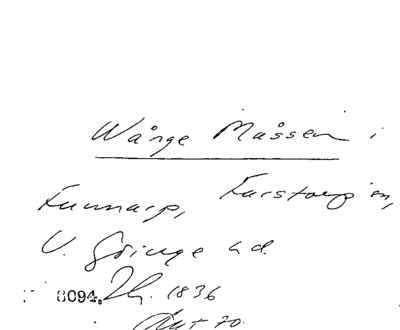 Wånge Måssen i
Gunnarp, Färstorp m,
V. Göinge hd.
8094. Th. 1836
Akt 70.